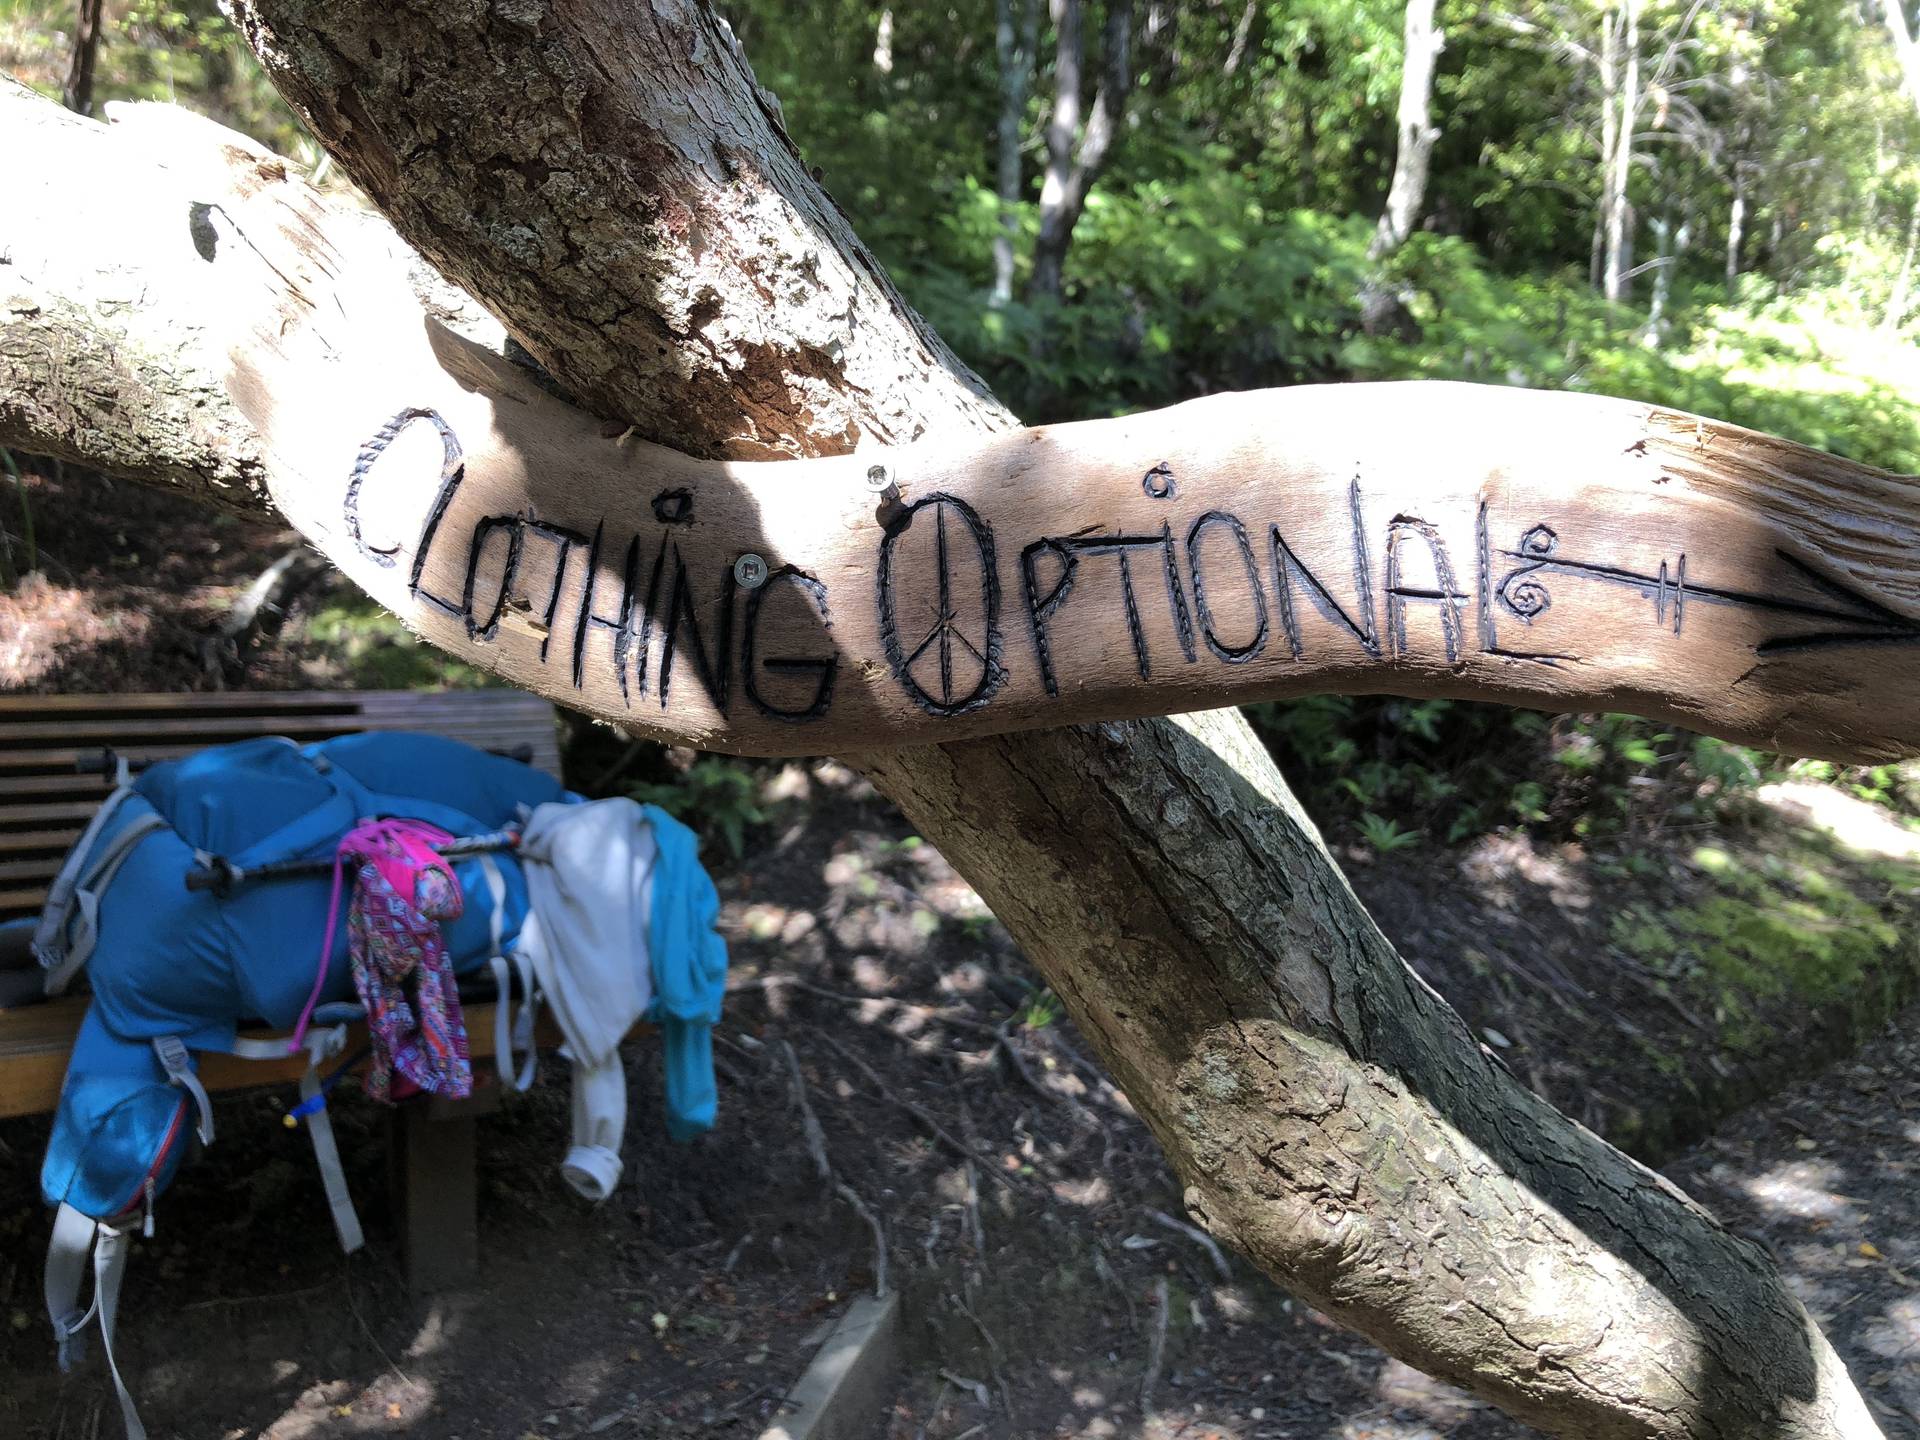 CLOTHiNG OPTiONAL